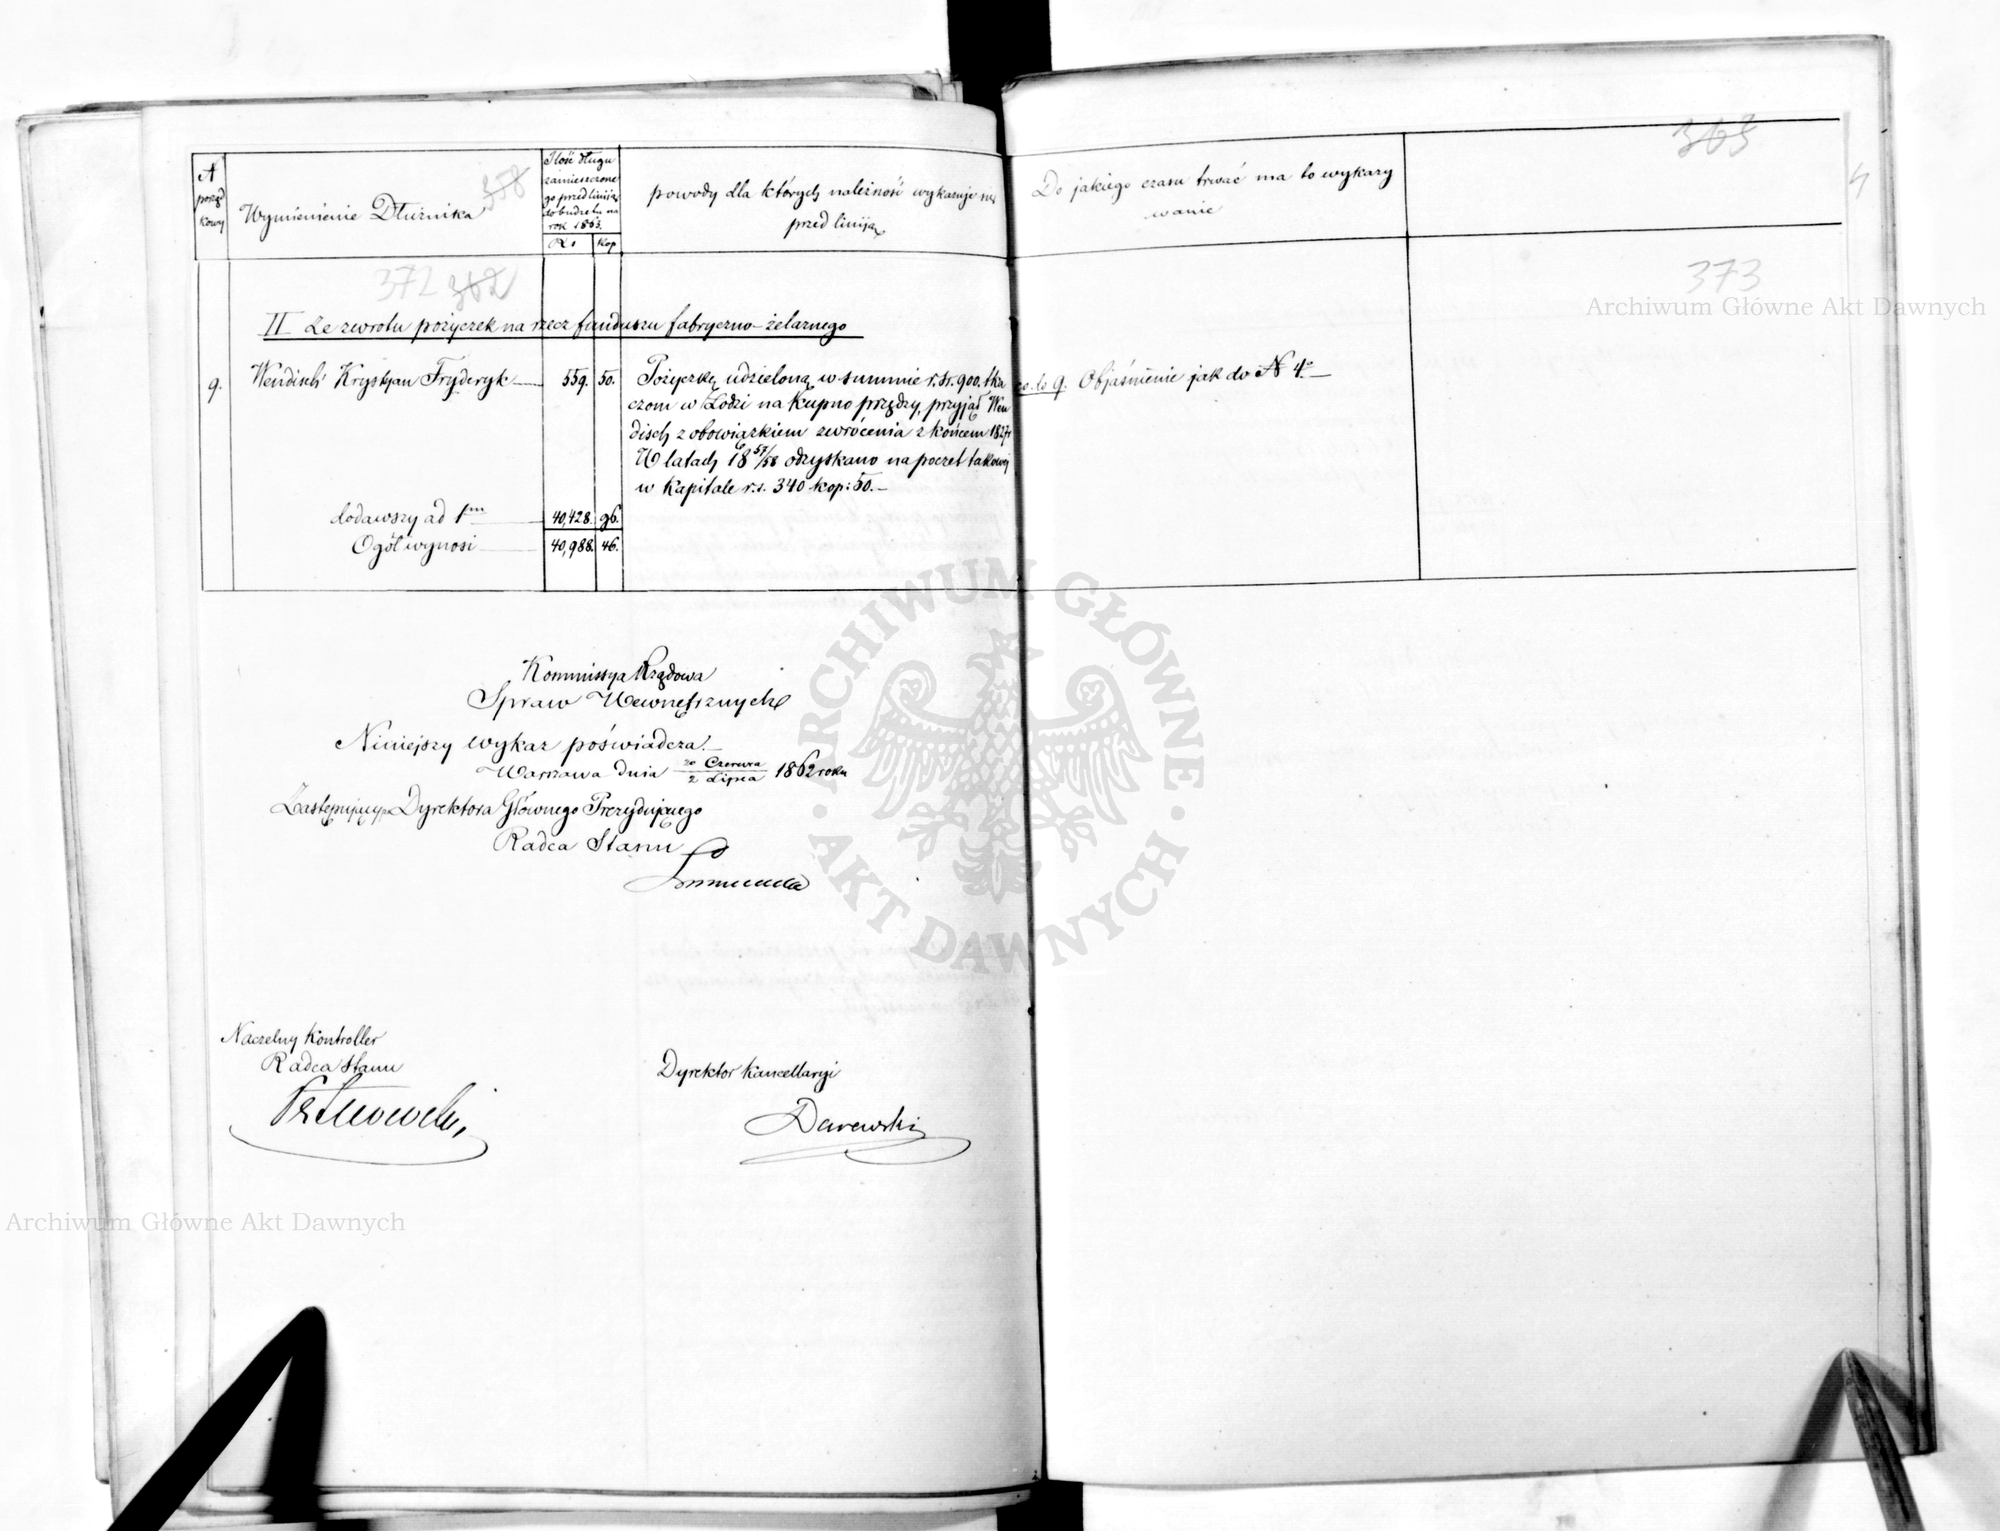 N
porząd
kowy
Wymienienie Dłużnika
358
Ilość długu
zamieszczone
go przed liniją
do budżetu na
rok 1863.
Rs
kop
powody dla których należność wykazuje się
przed liniją
Do jakiego czasu trwać ma to wykazy
wanie
363
372 362
373
Archiwum Główne Akt Dawnych
II Ze zwrotu pożyczek na rzecz funduszu fabryczno-żelaznego
9. Wendisch Krystjan Fryderyk 559. 50.
Pożyczkę udzieloną w summie r.sr. 900. tka
czom w Łodzi na kupno przędzy, przyjął Wen
disch z obowiązkiem zwrócenia z końcem 1827 r
W latach 18 57/58 odzyskano na poczet takowej
w kapitale r.s. 340 kop: 50.
ad 9. Objaśnienie jak do N 4o
dodawszy ad 1m 40,428. 96.
Ogół wynosi 40,988. 46.
Kommissya Rządowa
Spraw Wewnętrznych
Niniejszy wykaz poświadcza.
Warszawa dnia 20 Czerwca / 2 Lipca 1862 roku
Zastępujący Dyrektora Głównego Prezydującego
Radca Stanu
ARCHIWUM GŁÓWNE
AKT DAWNYCH
Naczelny Kontroller
Radca Stanu
Dyrektor Kancellaryi
Darewski
Archiwum Główne Akt Dawnych